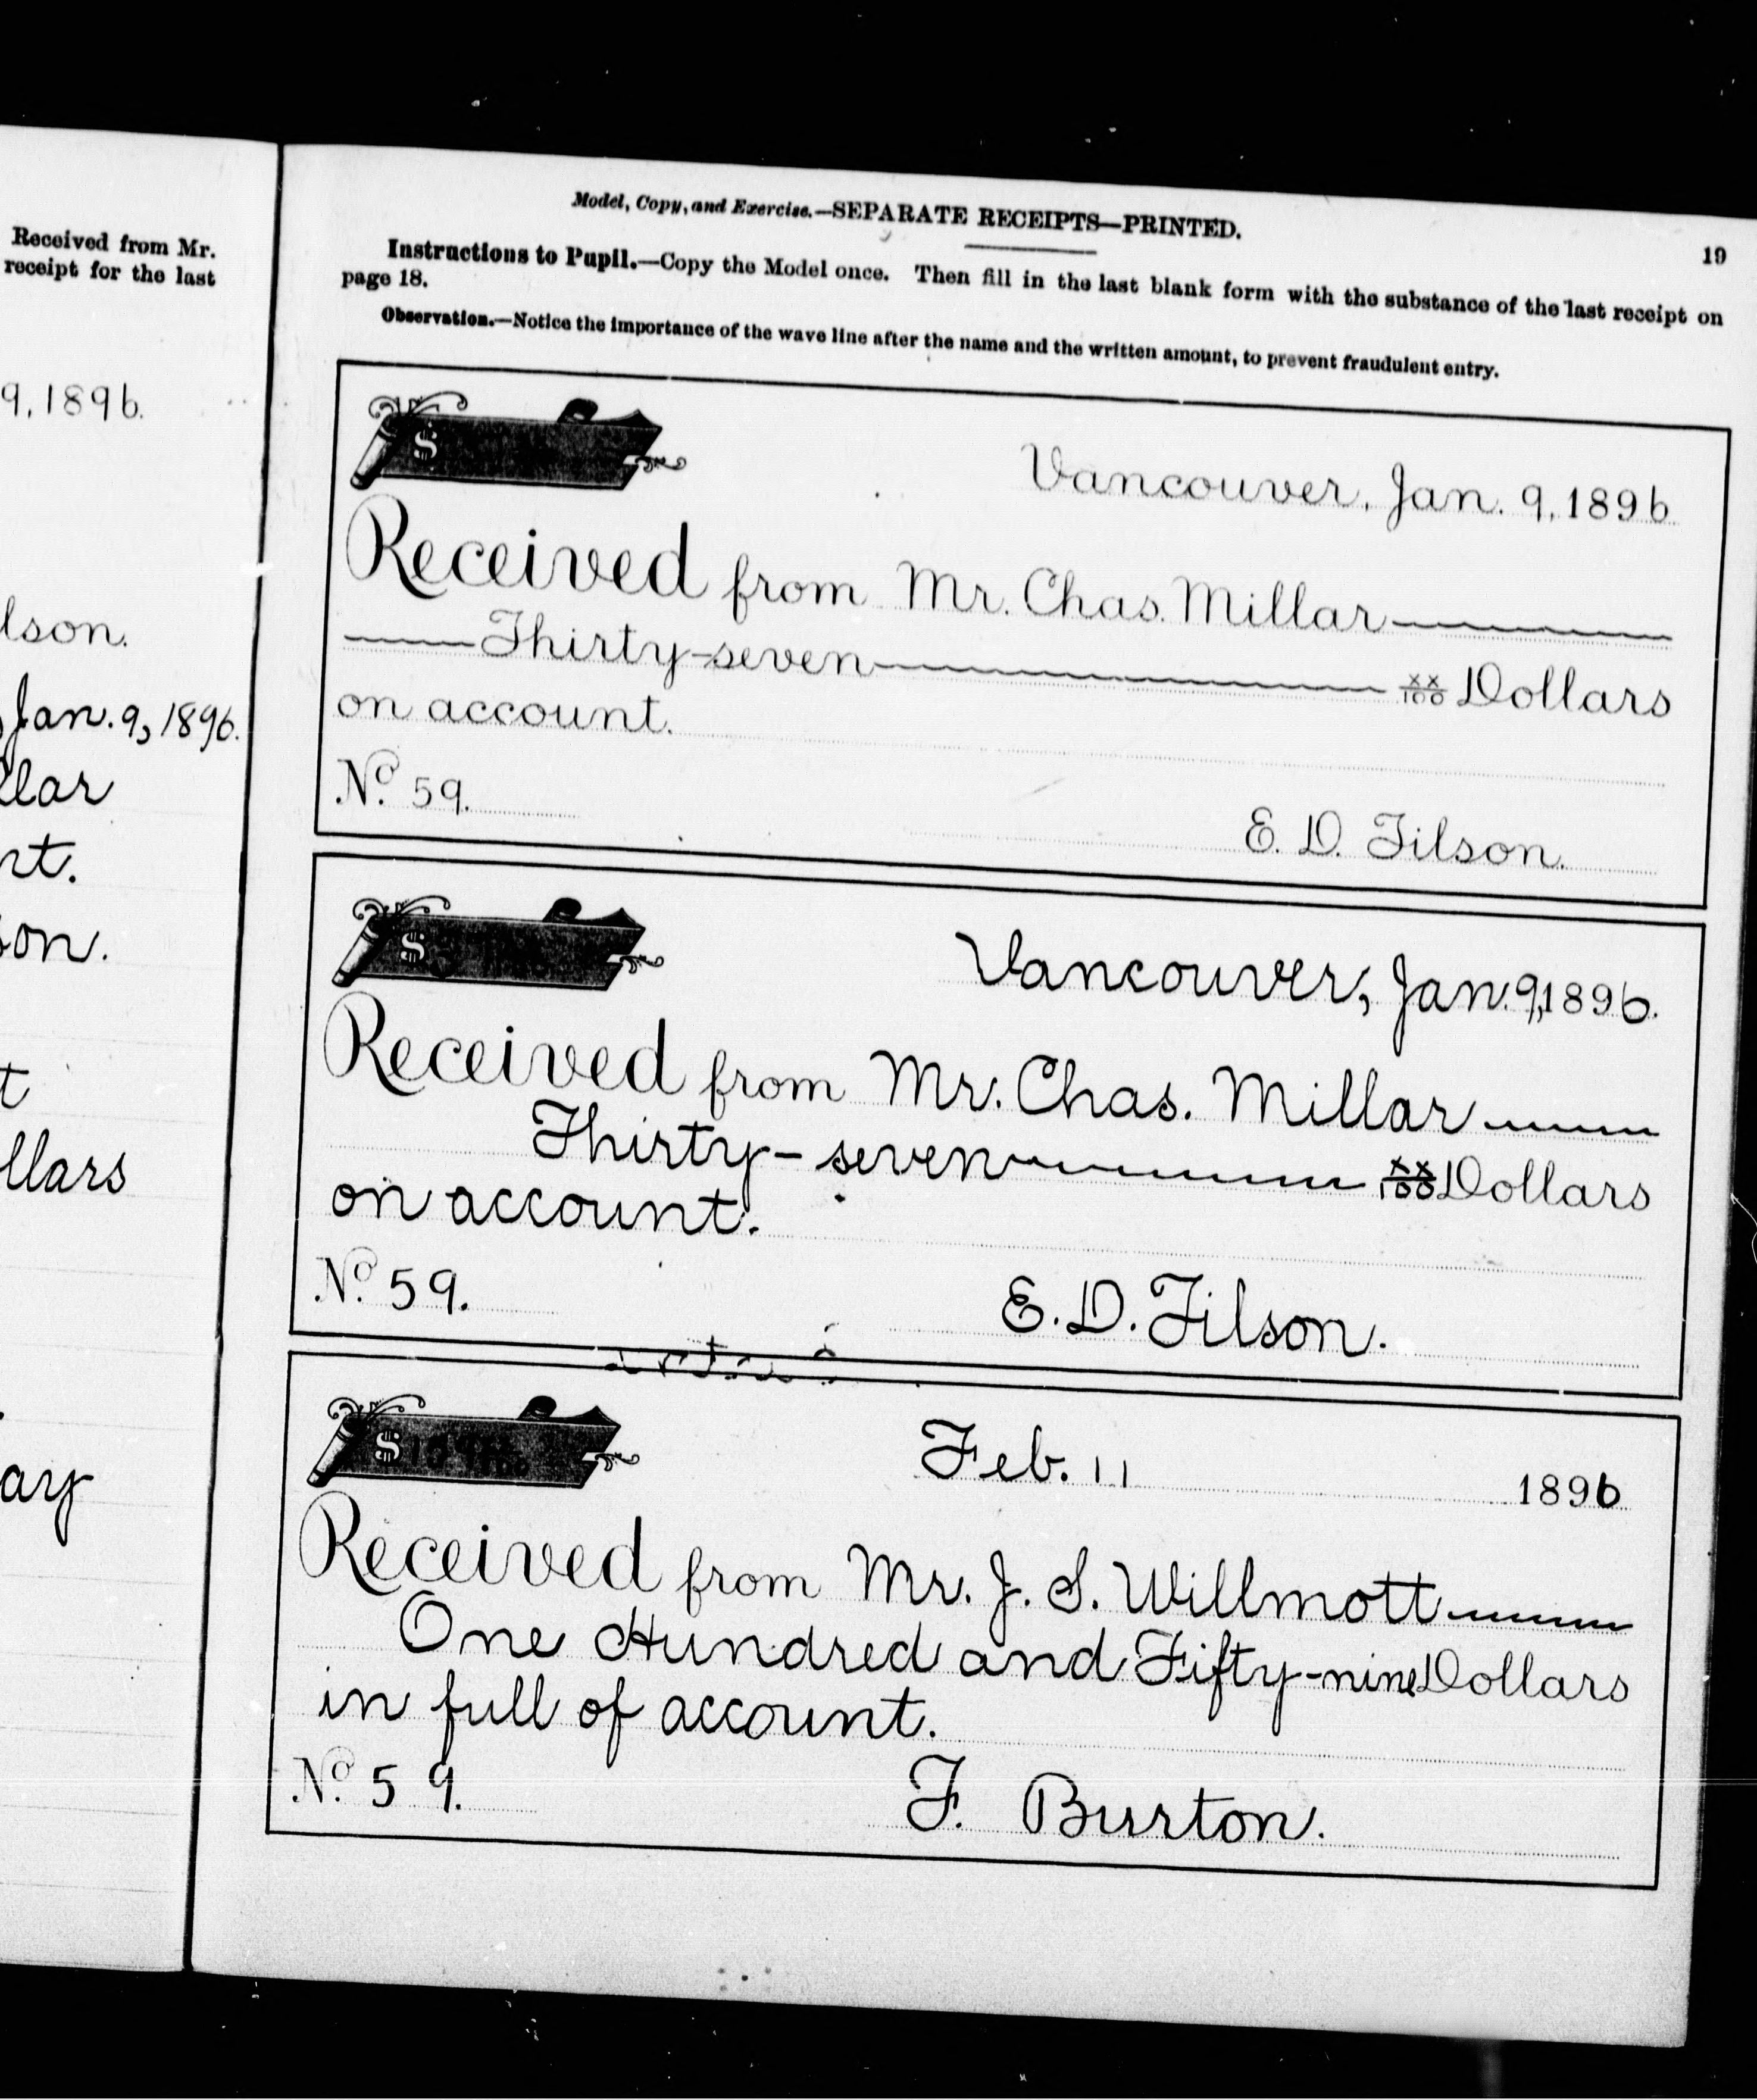 Received from Mr.
receipt for the last
9, 1896.
lson.
Jan. 9, 1896.
llar
nt.
son.
t
llars
ay
Model, Copy, and Exercise.—SEPARATE RECEIPTS—PRINTED.
19
Instructions to Pupil.—Copy the Model once. Then fill in the last blank form with the substance of the last receipt on
page 18.
Observation.—Notice the importance of the wave line after the name and the written amount, to prevent fraudulent entry.
$
Vancouver, Jan. 9, 1896.
Received from Mr. Chas. Millar
Thirty-seven xx/100 Dollars
on account.
No. 59.
E. D. Tilson.
$
Vancouver, Jan. 9, 1896.
Received from Mr. Chas. Millar
Thirty-seven xx/100 Dollars
on account.
No. 59.
E. D. Tilson.
$
Feb. 11 1896
Received from Mr. J. S. Willmott
One Hundred and Fifty-nine Dollars
in full of account.
No. 59.
F. Burton.